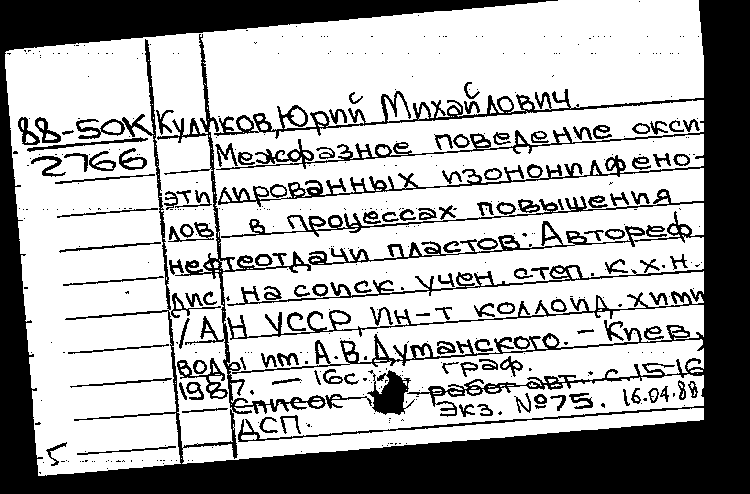 88-50К Куликов, Юрий Михайлович.
2766 Межфазное поведение окси-
этилированных изононилфено-
лов в процессах повышения
нефтеотдачи пластов: Автореф
дис. на соиск. учен. степ. к.х.н.
/АН УССР, Ин-т коллоид. хими
воды им. А.В. Думанского. - Киев,
1987. - 16с. граф.
Список работ авт.: с. 15-16
ДСП. Экз. №75. 16.04.88
5